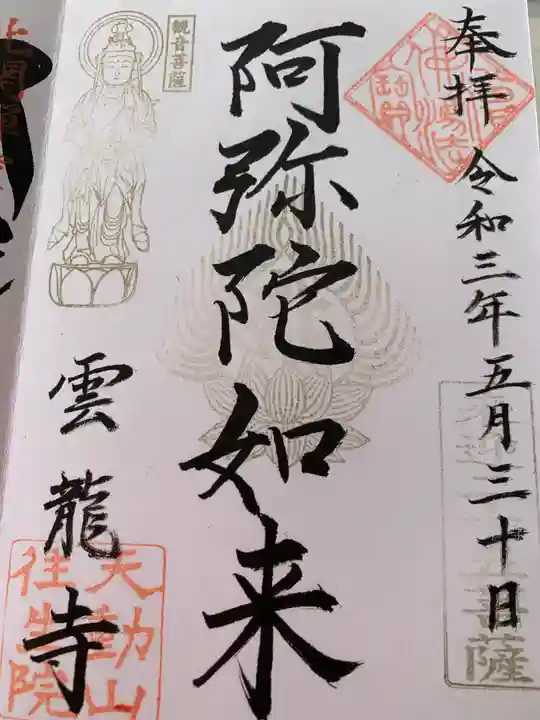 奉拝 令和三年五月三十日
阿弥陀如来
観音菩薩
雲龍寺
天勤山
往生院
菩薩